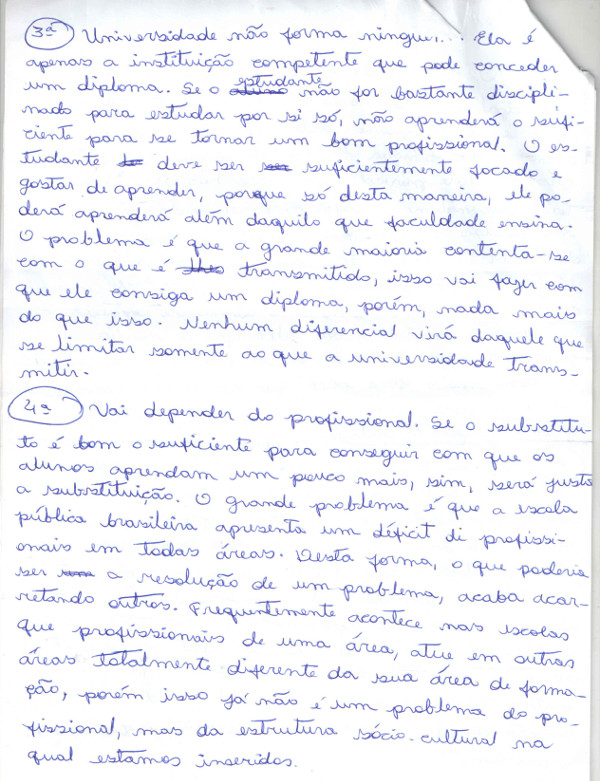 3ª Universidade não forma ningu... Ela é
apenas a instituição competente que pode conceder
um diploma. Se o aluno estudante não for bastante discipli-
nado para estudar por si só, não aprenderá o sufi-
ciente para se tornar um bom profissional. O es-
tudante deve ser suficientemente focado e
gostar de aprender, porque só desta maneira, ele po-
derá aprenderá além daquilo que faculdade ensina.
O problema é que a grande maioria contenta-se
com o que é transmitido, isso vai fazer com
que ele consiga um diploma, porém, nada mais
do que isso. Nenhum diferencial virá daquele que
se limitar somente ao que a universidade trans-
mitir.
4ª Vai depender do profissional. Se o substitu-
to é bom o suficiente para conseguir com que os
alunos aprendam um pouco mais, sim, será justo
a substituição. O grande problema é que a escola
pública brasileira apresenta um déficit di profissi-
onais em todas áreas. Desta forma, o que poderia
ser a resolução de um problema, acaba acar-
retando outros. Frequentemente acontece nas escolas
que profissionais de uma área, atue em outras
áreas totalmente diferente da sua área de forma-
ção, porém isso já não é um problema do pro-
fissional, mas da estrutura sócio-cultural na
qual estamos inseridos.